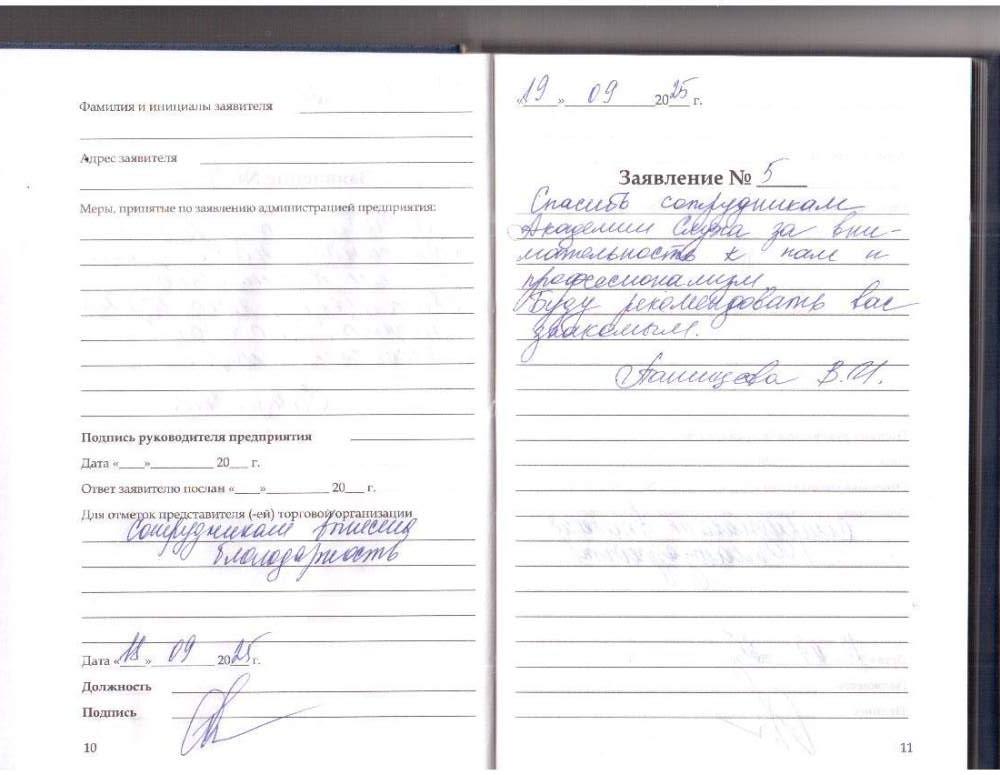 Фамилия и инициалы заявителя
Адрес заявителя
Меры, принятые по заявлению администрацией предприятия:
Подпись руководителя предприятия
Дата «___»__________ 20___ г.
Ответ заявителю послан «____»__________ 20___ г.
Для отметок представителя (-ей) торговой организации
Сотрудникам вынесена
благодарность
Дата «18» 09 2025 г.
Должность
Подпись
10
«19» 09 2025 г.
Заявление № 5
Спасибо сотрудникам
Академии Слуха за вни-
мательность к нам и
професионализм
Буду рекомендовать вас
знакомым.
В.И.
11